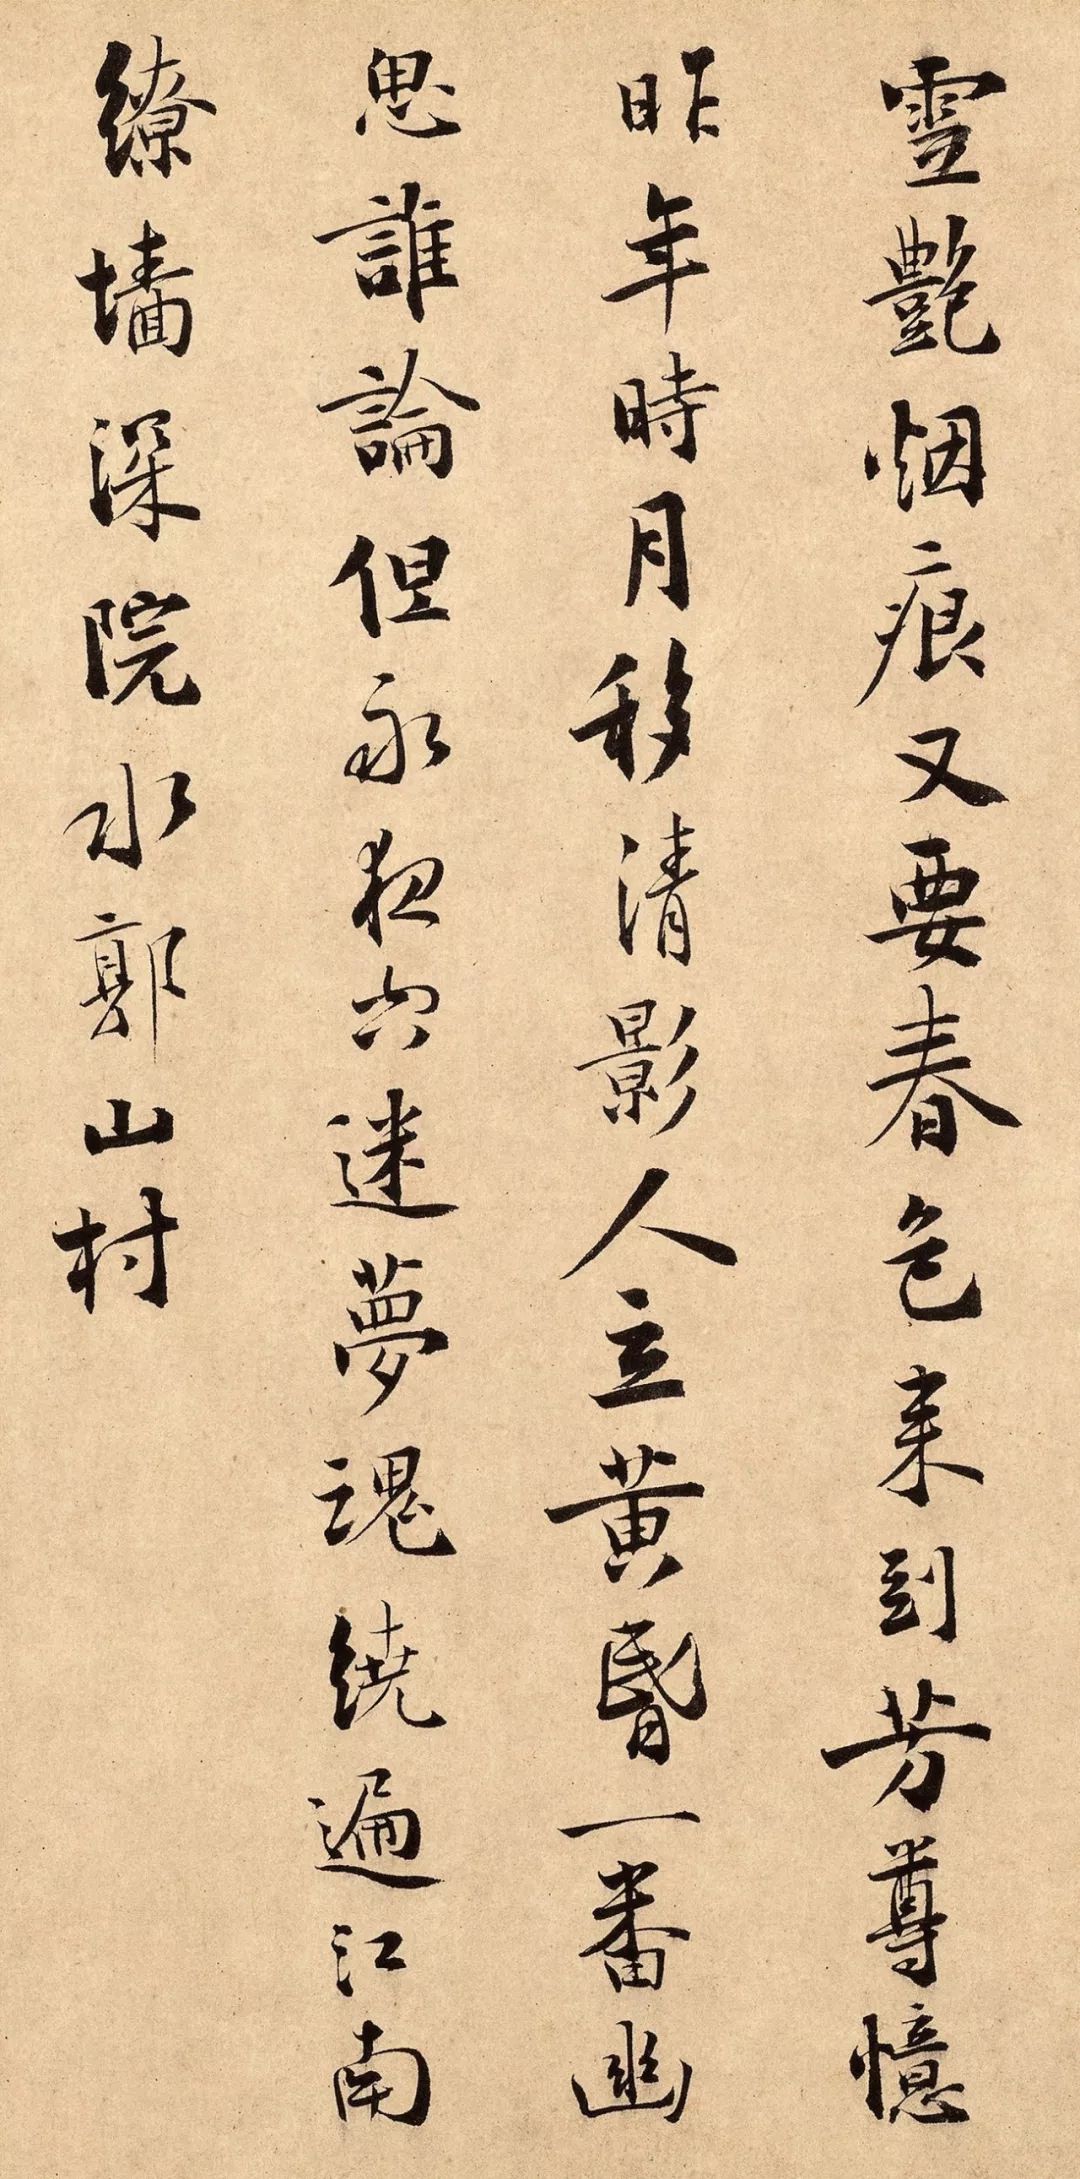 雪艶烟痕又要春色来到芳尊憶
昨年時月移清影人立黄昬一番幽
思誰論但永夜空迷夢魂繞遍江南
繚墙深院水郭山村